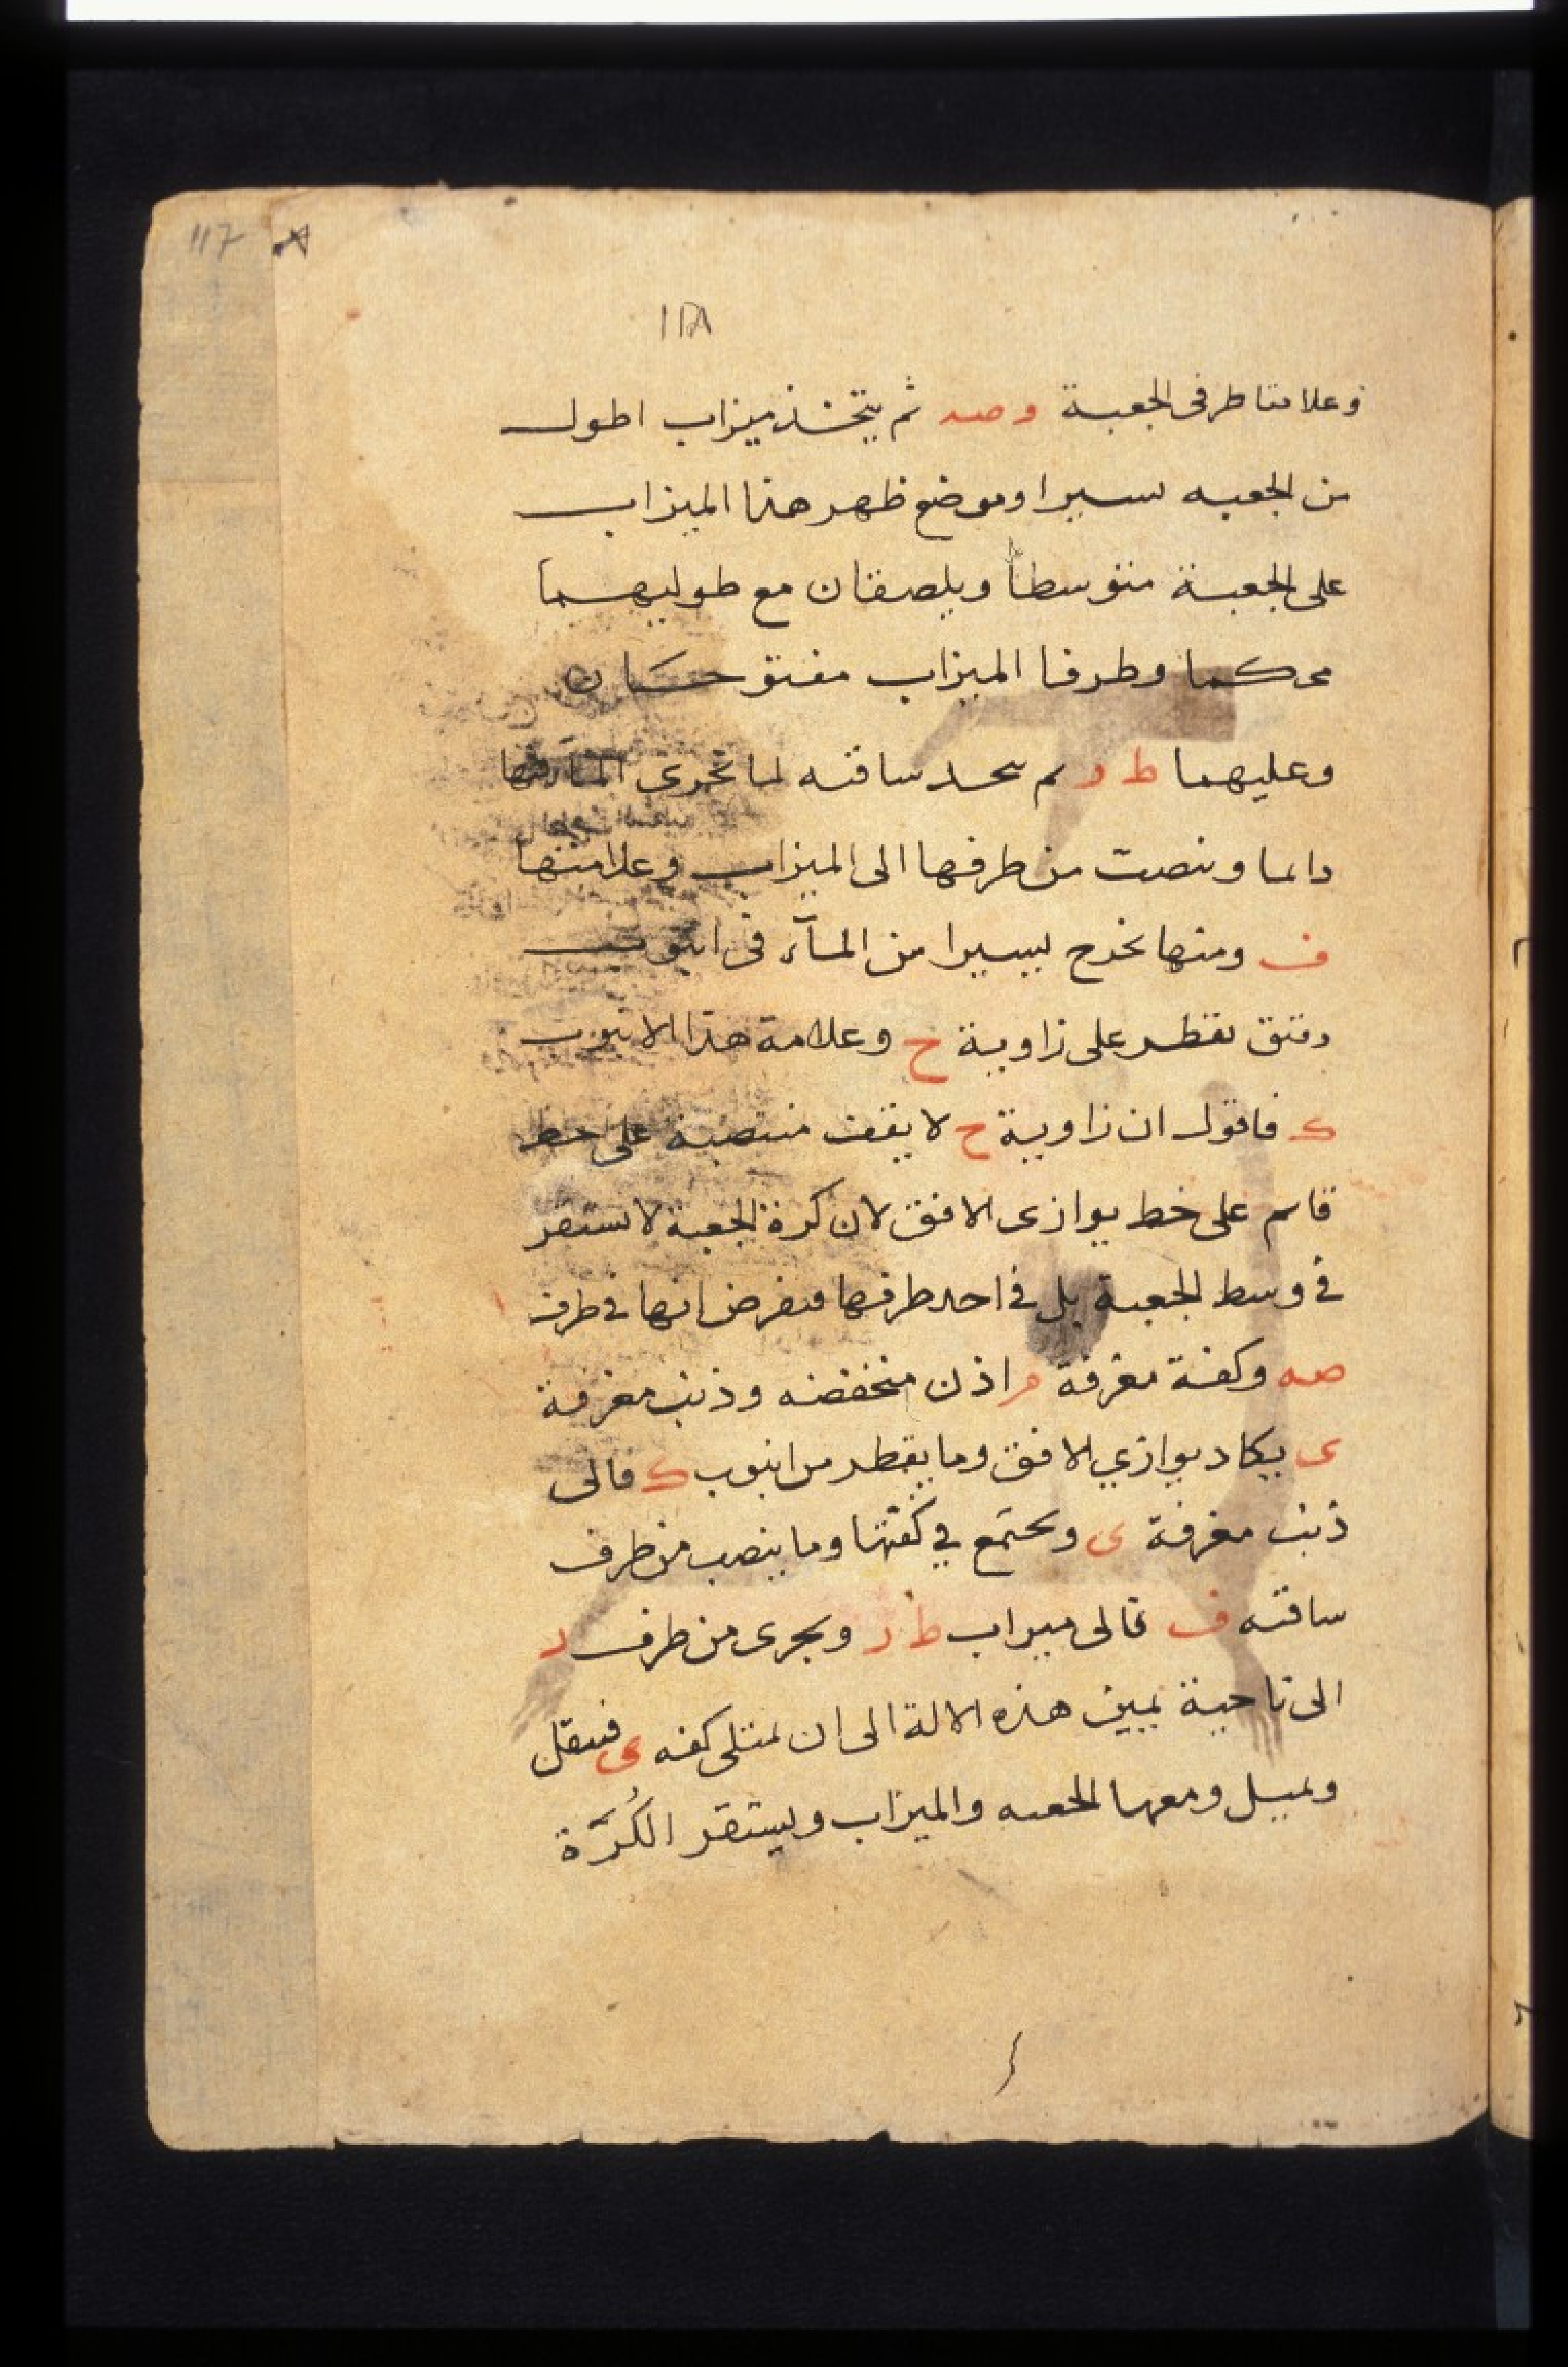 117
١١٨
وعلامتا طرفى الجعبة و صه ثم يتخذ ميزاب اطول
من الجعبه يسيرا وموضع ظهر هذا الميزاب
على الجعبة متوسطا ويلصقان مع طوليهما
محكما وطرفا الميزاب مفتوحان
وعليهما ط د ثم يتخذ ساقته لما تجرى الماء فيها
دايما وينصب من طرفها الى الميزاب وعلامتها
ف ومنها يخرج يسيرا من الماء فى انبوب
دقيق يقطر على زاوية ح وعلامة هذا الانبوب
ك فاقول ان زاوية ح لا يقف منتصبة على خط
قايم على خط يوازى الافق لان كرة الجعبة لا تستقر
فى وسط الجعبة بل فى احد طرفيها فنفرض انها فى طرف
صه وكفة مغرفة م اذن منخفضه وذنب مغرفة
ى يكاد يوازي الافق وما يقطر من انبوب ك فالى
ذنب مغرفة ى ويجتمع في كفتها وما ينصب من طرف
ساقته ف فالى ميزاب ط د ويجرى من طرف د
الى ناحية يمين هذه الالة الى ان تمتلى كفه ى فيثقل
ويميل ومعها الجعبه والميزاب ويستقر الكُرَّة